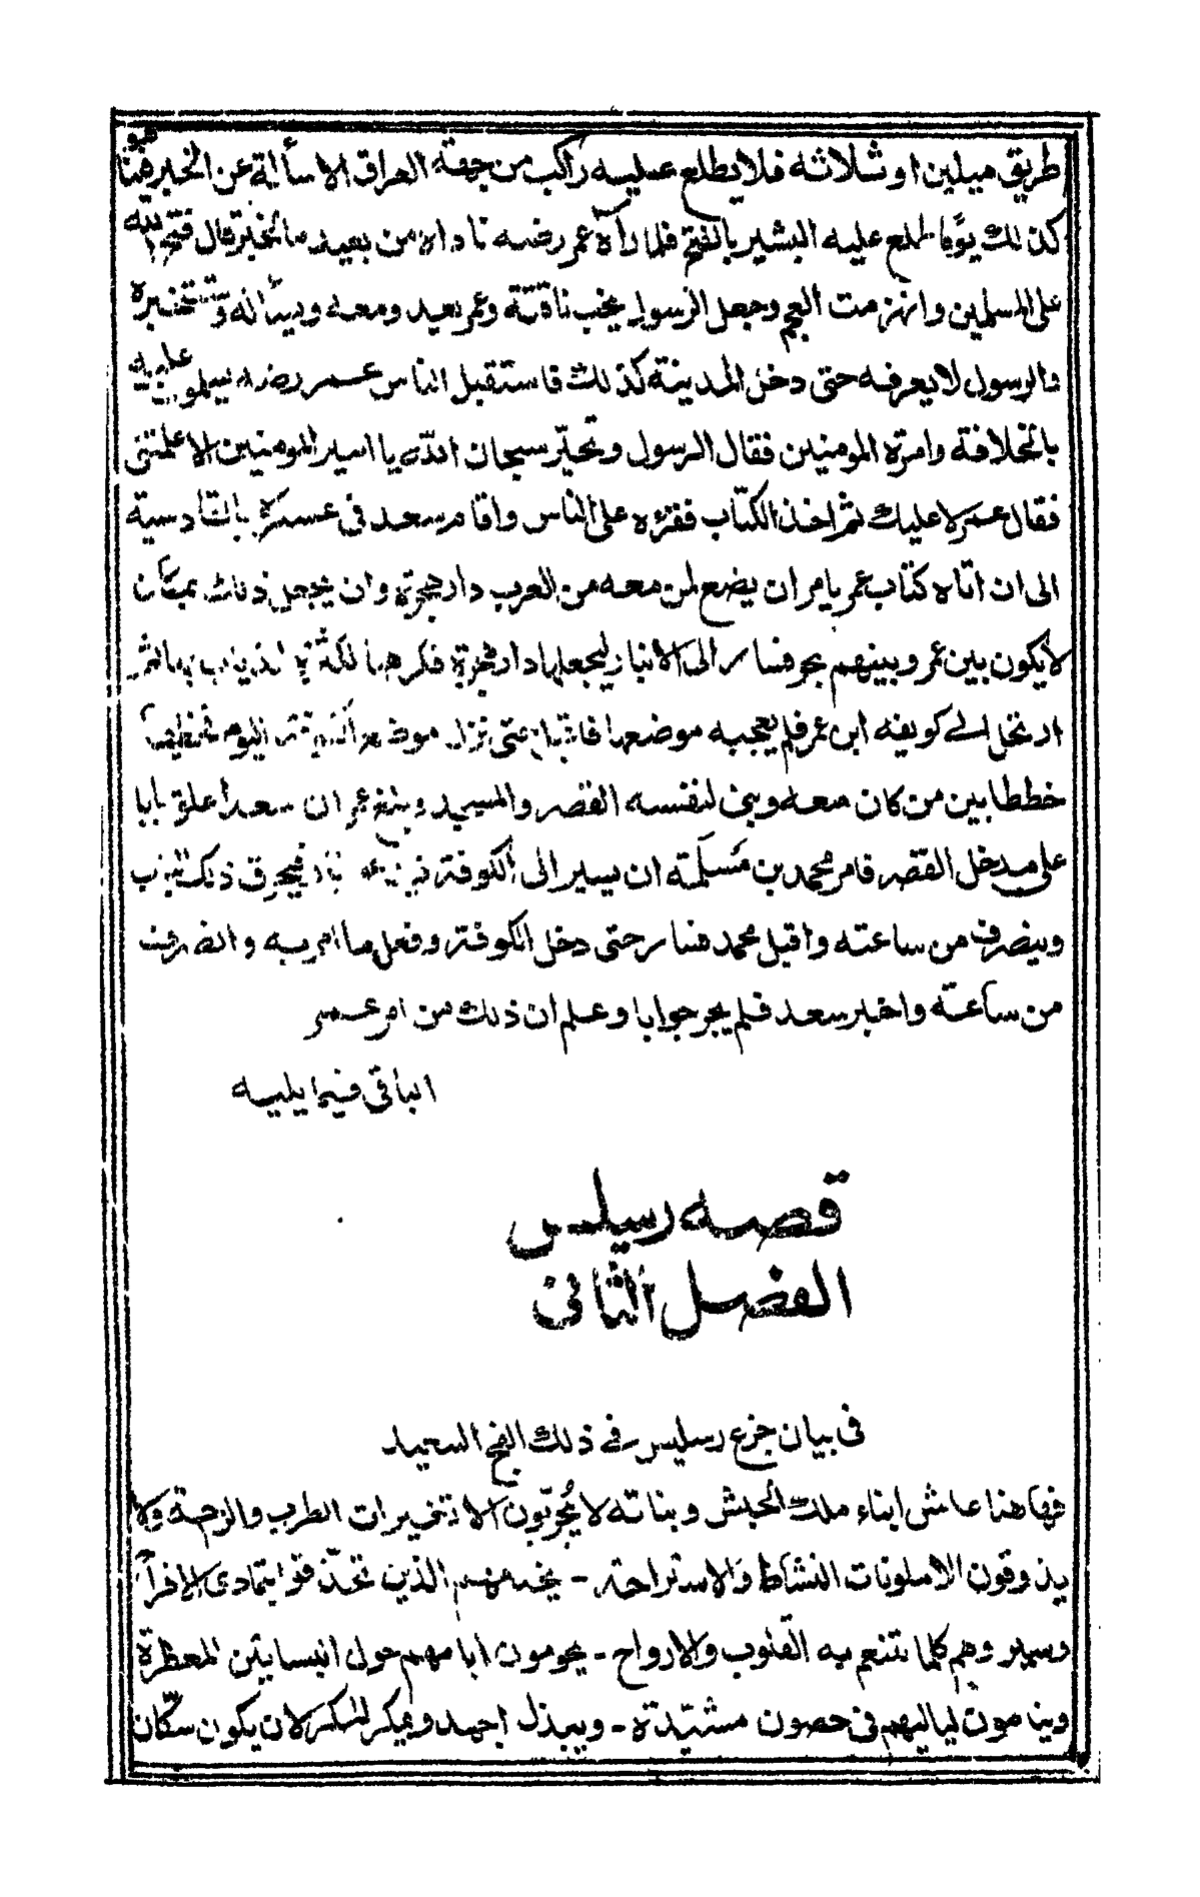 طريق ميلين او ثلاثه فلا يطلع عليه راكب من جهة العراق الا سأله عن الخبر فبينا هو
كذلك يوما طلع عليه البشير بالفتح فلما رآه عمر رضه ناداه من بعيد ما الخبر قال فتح الله
على المسلمين وانهزمت العجم وجعل الرسول يخب ناقته وعمر بعيد ومعه ويسأله ويخبره
والرسول لا يعرفه حتى دخل المدينة كذلك فاستقبل الناس عمر رضه يسلمون عليه
بالخلافة وامرة المومنين فقال الرسول وتحيّر سبحان الله يا امير المومنين الا اعلمتنى
فقال عمر لا عليك ثم اخذ الكتاب فقرءه على الناس واقام سعد فى عسكره بالقادسية
الى ان اتاه كتاب عمر يامر ان يضع لمن معه من العرب دار هجرة وان يجعل ذلك بمكان
لا يكون بين عمر وبينهم بحر فسار الى الانبار ليجعلها دار هجرة فكرهها لكثرة الذباب بها ثم
ارتحل الى كويفه ابن عمر فلم يعجبه موضعها فاقبل حتى نزل موضع الكوفة اليوم فخطها
خططا بين من كان معه وبنى لنفسه القصر والمسجد وبلغ عمر ان سعدا علق بابا
على مدخل القصر فامر محمد بن مسلمة ان يسير الى الكوفة فيحرق ذلك الباب
وينصرف من ساعته واقبل محمد فسار حتى دخل الكوفة وفعل ما امر به وانصرف
من ساعته واخبر سعد فلم يحر جوابا وعلم ان ذلك من امر عمر
الباقى فيما يليه
قصه رسيلس
الفصل الثانى
فى بيان جزع رسليس فى ذلك الفج السعيد
فها هنا عاش ابناء ملك الحبش وبناته لا يُجرّبون الا تخيرات الطرب والزحمة ولا
يذوقون الا ملونات النشاط والاستراحة - يخدمهم الذين تحذقوا بتمادى الافرآ
وسمير وهم كلما تتنعم به القلوب والارواح - يحومون ايامهم حول البساتين المعطرة
وينامون لياليهم فى حصون مشيّدة - ويبذل اجهد ومكر المكر لان يكون سكّان